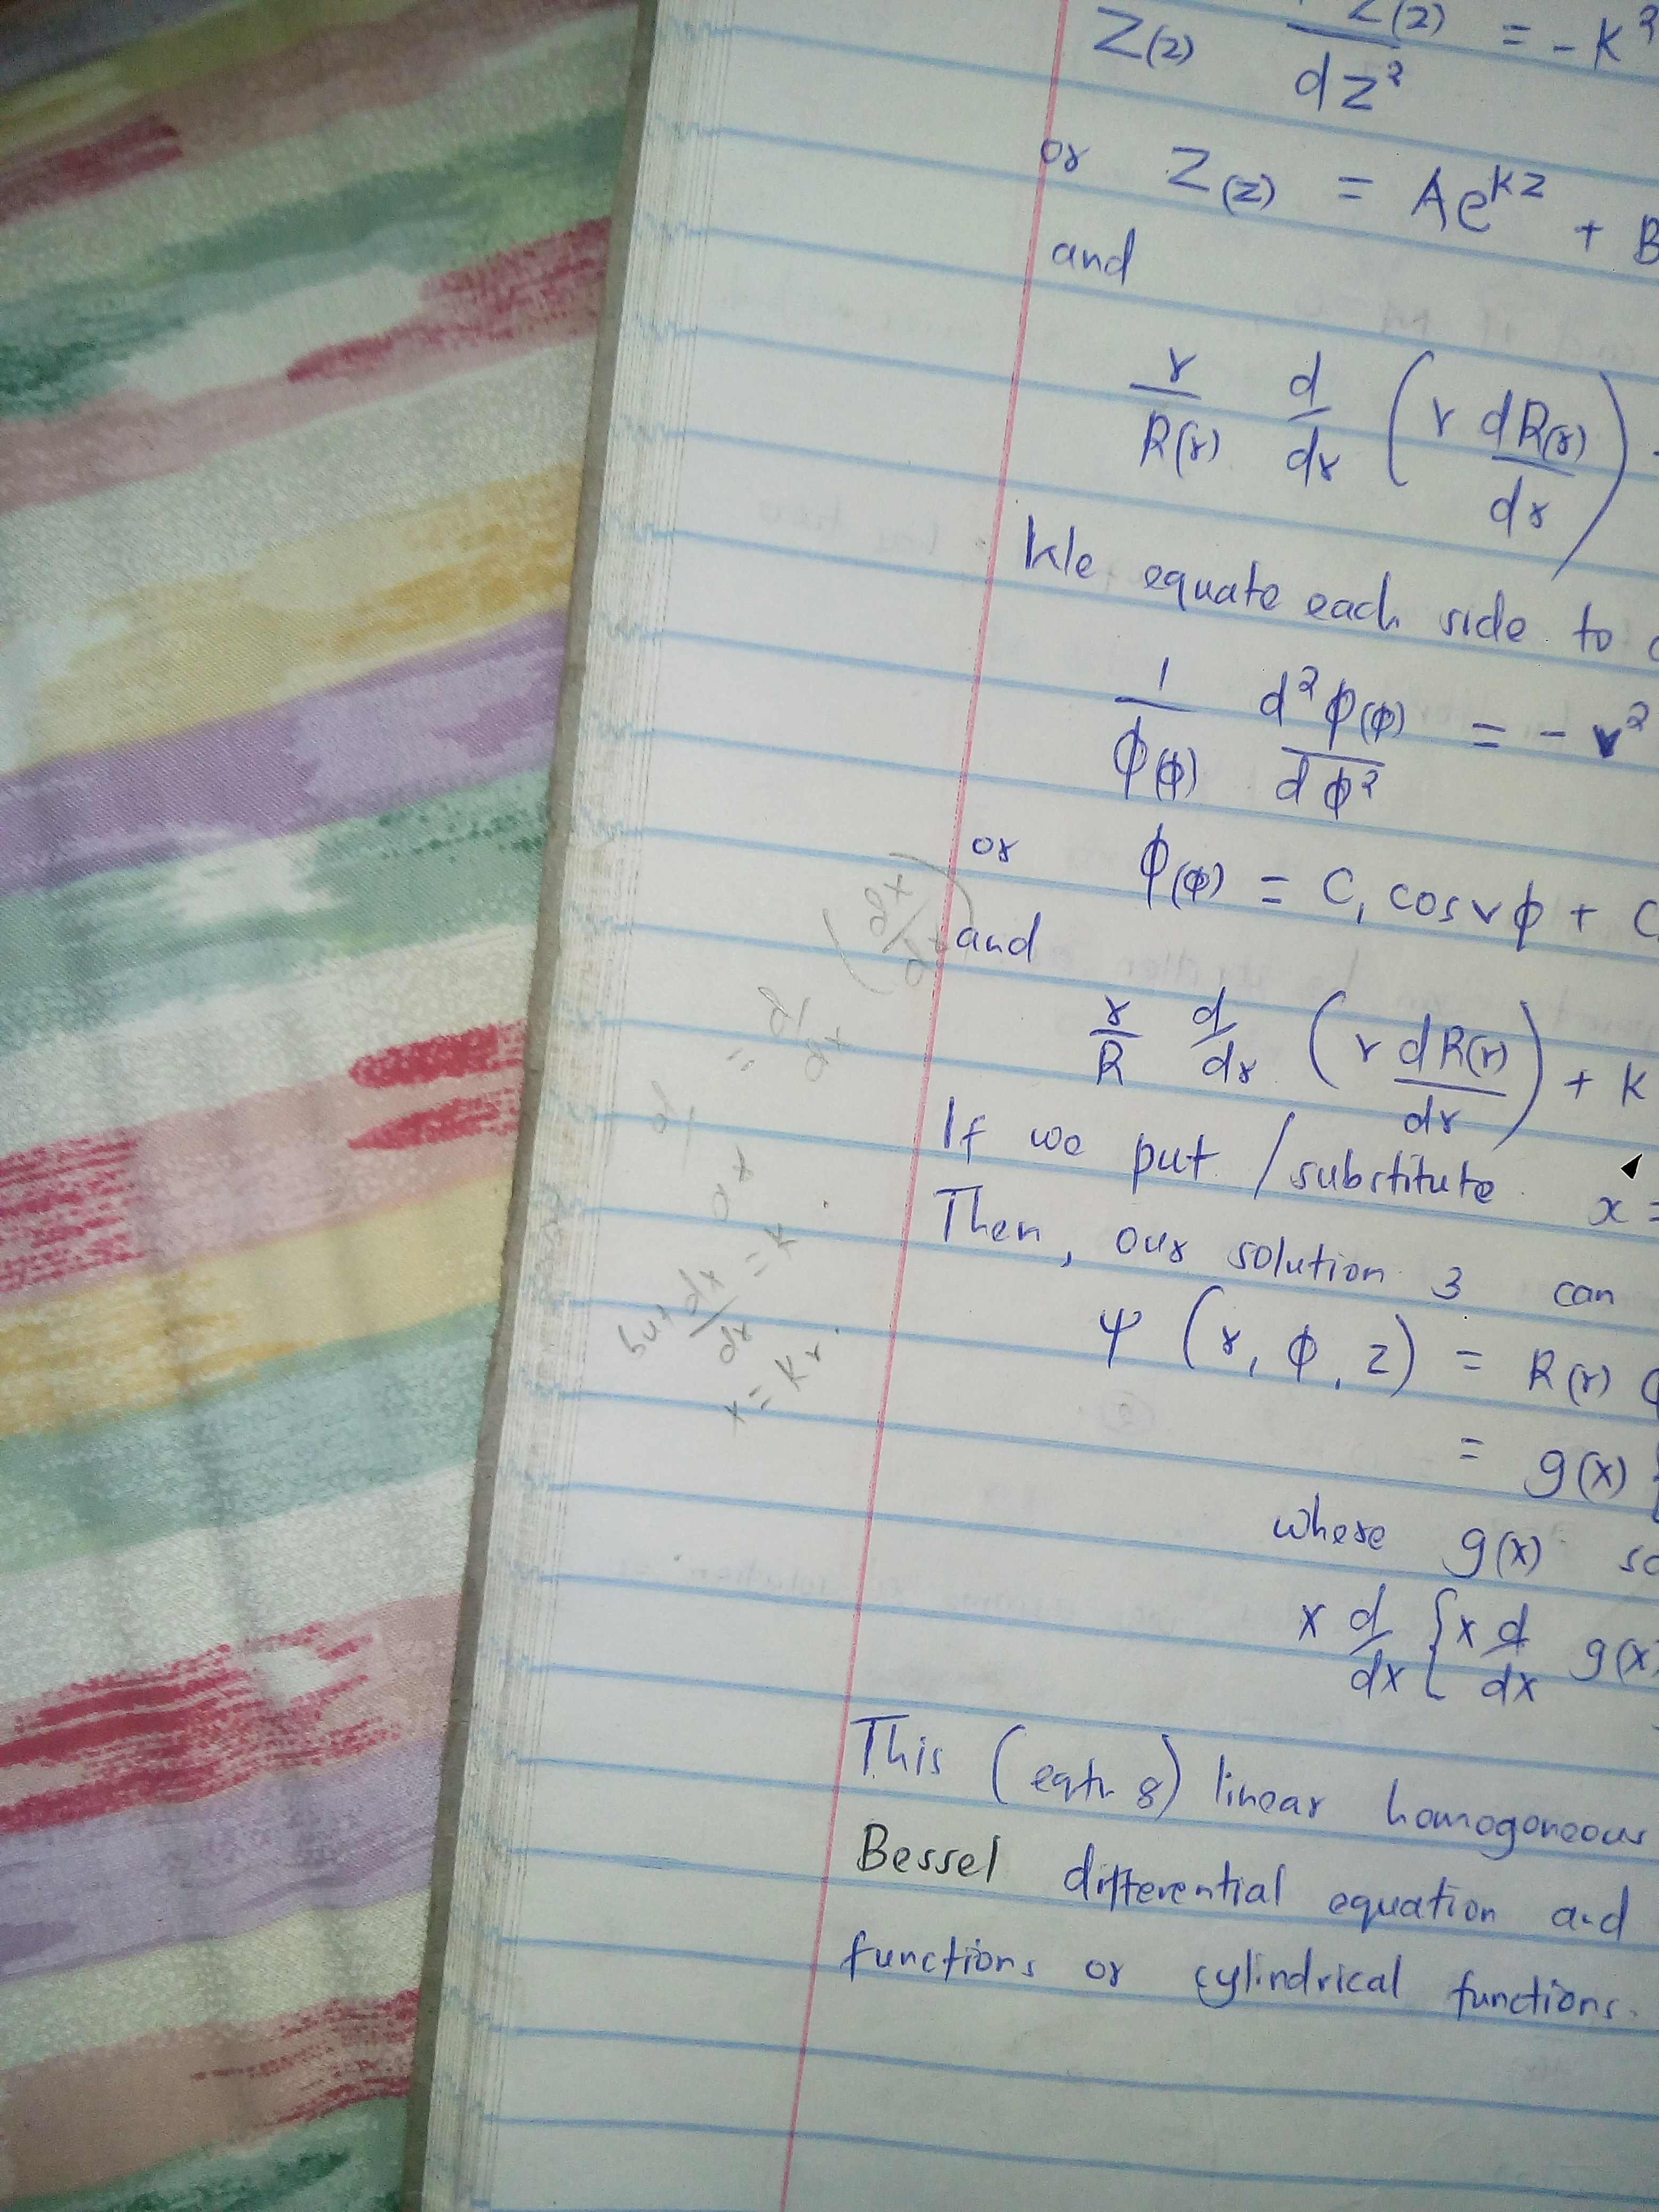 Z(z) Z(z) / dz² = - k²
or Z(z) = Ae^kz + B
and
r/R(r) d/dr ( r dR(r)/dr )
We equate each side to
1/ϕ(ϕ) d²ϕ(ϕ)/dϕ² = - v²
or ϕ(ϕ) = C₁ cosvϕ + C
and
r/R d/dr ( r dR(r)/dr ) + k
If we put / substitute x =
Then, our solution 3 can
Ψ (r, ϕ, z) = R(r)
= g(x) {
where g(x)
x d/dx { x d/dx g(x)
This (eqtn 8) linear homogoneous
Bessel differential equation and
functions or cylindrical functions.
(dx/dr)
= df/dx
but dx/dr = k
x = kr.